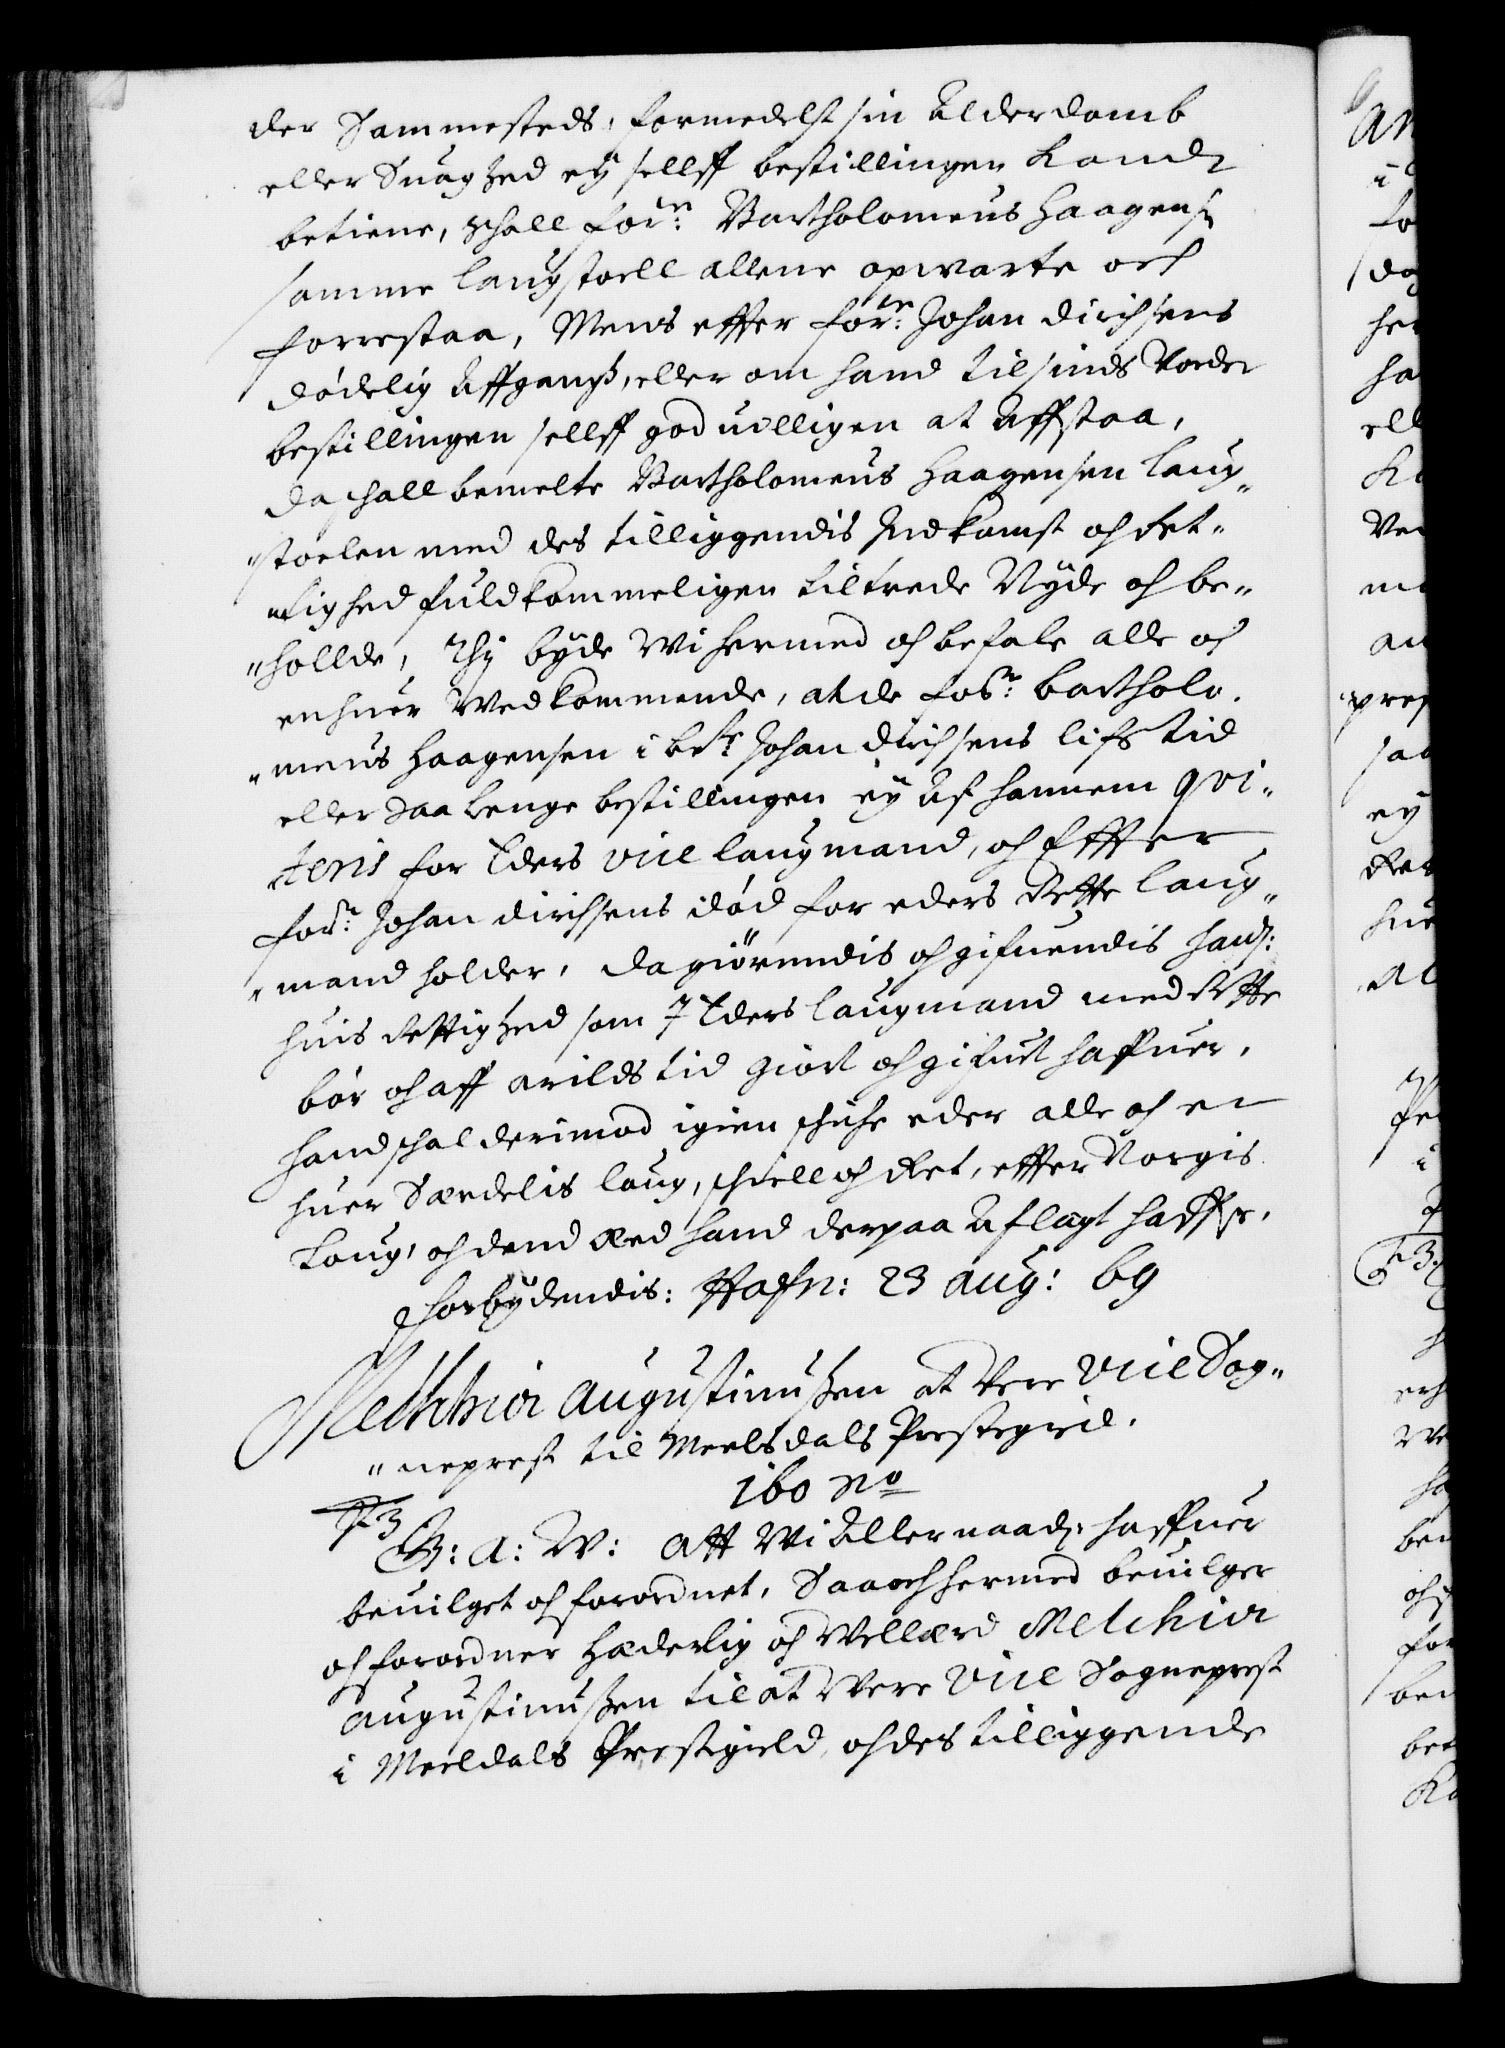 der Sammesteds, formedelst sin Alderdomb
eller Suaghed ey sellff bestillingen Kand
betiene, schall forn: Bartholomeus Haagens:
samme laugstoell allene opwarte och
forrestaa, Mens effter forn: Johan Dirichsens
dødelig Affgang, eller om hand tilsinds Vorder
bestillingen sellff goduilligen at Affstaa,
da schall bemelte Bartholomeus Haagensen laug„
„stoelen med des tilliggendis Indkomst och Ret„
„tighed fuldkommeligen tiltrede Nyde och be„
„hollde, Thi byde Wi hermed och befale alle och
enhuer Wedkommende, at de forn: Bartholo„
„meus Haagensen i bte Johan Dirichsens lifs tid
eller saa lenge bestillingen ey Af hannem qvi„
teris for Eders vice laugmand, och Effter
forn: Johan Dirichsens død for eders Rette laug„
„mand holder, da giørendis och gifuendis hand:
huis Rettighed som I Eders laugmand med Rette
bør och aff arilds tid giort och gifuet haffuer,
hand schal derimod igien schuffe eder alle och en
huer Særdelis laug, schiell och Ret, effter Norgis
Laug, och dend Æed hand derpaa Aflagt haffr.
Forbydendis: Hafn: 23 aug: 69
Melchior Augustinussen at Vere Vice Sog„
„neprest til Meelsdals Prestegield.
160 No
F3 G: A: W: Att Wi Allernaad: haffuer
beuilget och forordnet, Saa och hermed beuilger
och forordner Hæderlig och Wellærd Melchior
Augustinussen til at Vere Vice Sogneprest
i Meeldals Prestigield, och des tilliggende